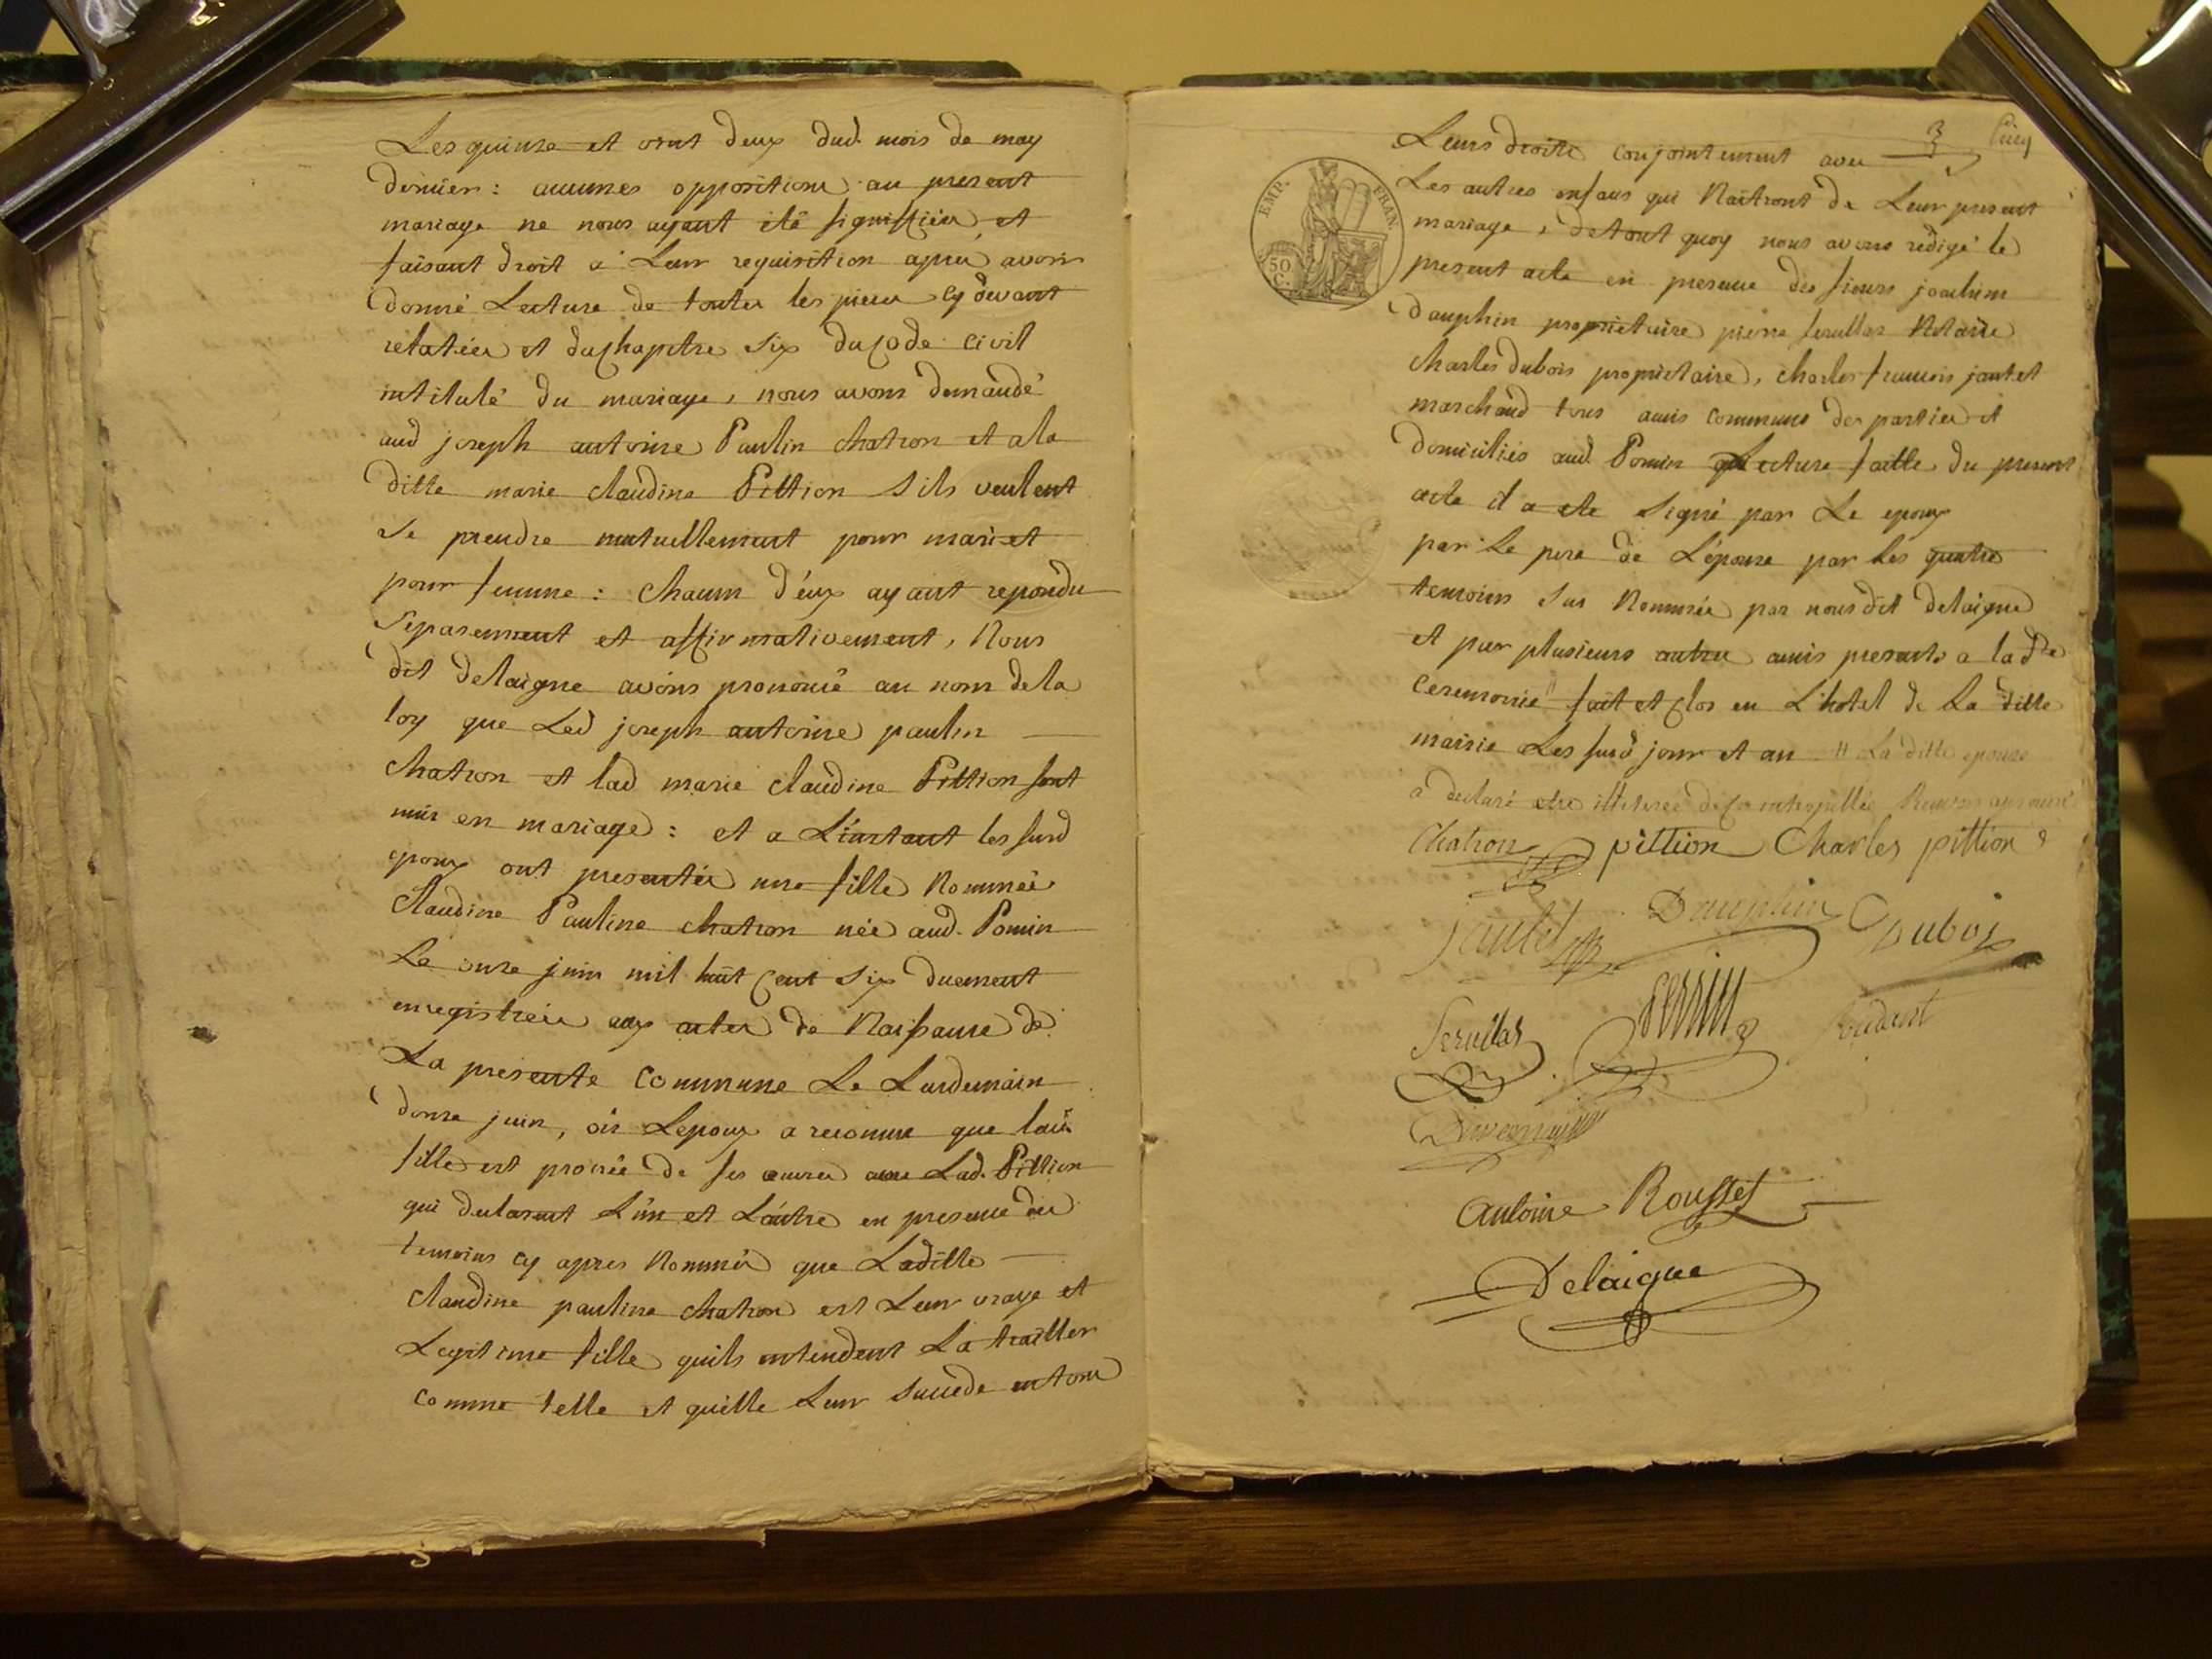 Les quinze et vint deux dud. mois de may
dernier : aucunes oppositions au present
mariage ne nous ayant été signiffiées, et
faisant droit a Leur requisition apres avoir
donné Lecture de toutes les pieces cy devant
relatées et du chapitre six du code civil
intitulé du mariage, nous avons demandé
aud joseph antoine Paulin chatron et a la
ditte marie claudine Pittion s'ils veulent
se prendre mutuellement pour mari et
pour femme : chacun d'eux ayant repondu
separement et affirmativement, Nous
dit delaigne avons prononcé au nom de la
loy que Led joseph antoine paulin
chatron et lad marie claudine Pittion sont
unis en mariage : et a L'instant les susd
epoux ont presentés une fille Nommée
claudine Pauline chatron née aud. Pomin
Le onze juin mil huit cent six duement
enregistrée aux actes de Naissance de
La presente commune Le Landemain
douze juin, où Lepoux a reconnu que lad
fille est procréé de ses œuvres avec Lad. Pittion
qui declarent L'un et L'autre en presence des
temoins cy apres Nommés que Laditte
claudine pauline chatron est Leur vraye et
Legitime fille quils entendent La traitter
comme telle et quelle Leur succede en tous
3
Leurs droits conjointement avec
Les autres enfans qui Naitront de Leur present
mariage, de tout quoy nous avons redigé le
present acte en presence des sieurs joachim
dauphin proprietaire pierre serullas Notaire
charles dubois proprietaire, charles francois jantet
marchand tous amis communs des parties et
domiciliés aud. Pomin Lecture faitte du present
acte il a ete signé par Le epoux
par Le pere de L'épouse par les quatre
temoins sus Nommés par nous dit delaigue
et par plusieurs autres amis presents a la dte
ceremonie fait et clos en L'hotel de La ditte
mairie Les susd jour et an // La ditte epouse
a declaré etre illiterée de ce interpellée
Chatron pittion Charles pittion
jantet Dauphin Dubois
EMP. FRAN.
50 C.
Serullas perrin
Antoine Rousset
Delaigue